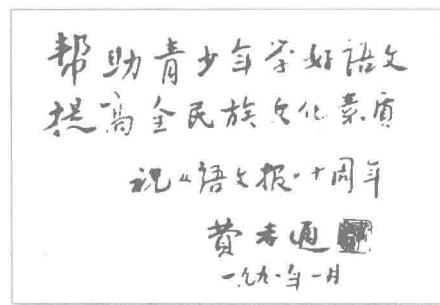 帮助青少年学好语文
提高全民族文化素质
祝《语文报》十周年
费孝通
一九九一年一月